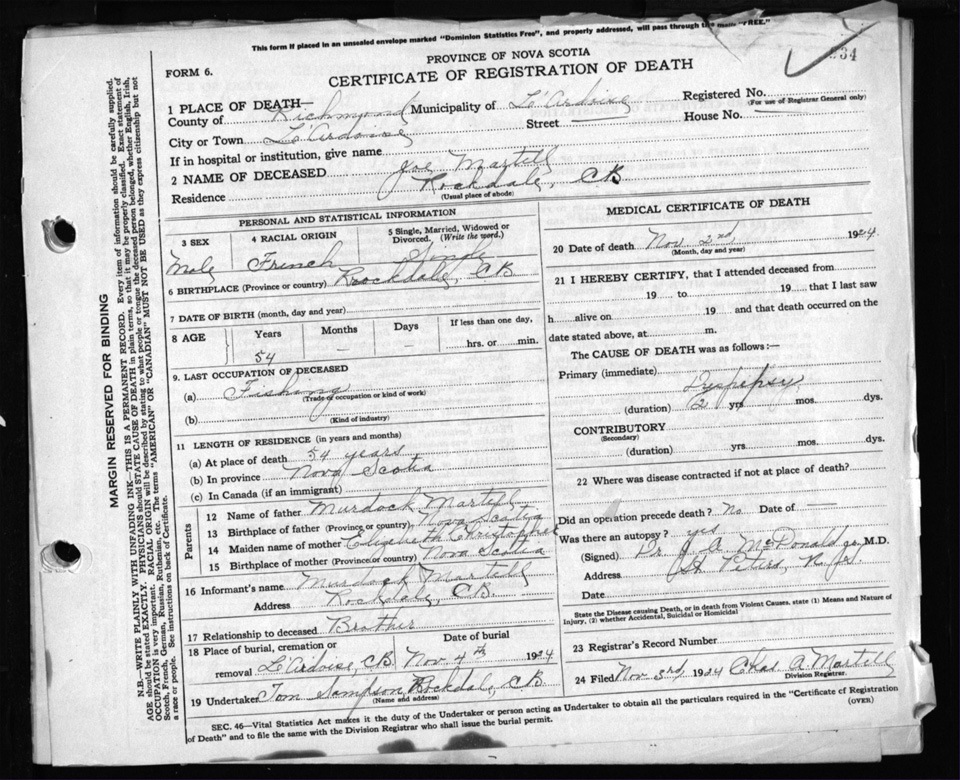 This form if placed in an unsealed envelope marked "Dominion Statistics Free", and properly addressed, will pass through the mails "FREE."
PROVINCE OF NOVA SCOTIA
FORM 6.
CERTIFICATE OF REGISTRATION OF DEATH
334
1 PLACE OF DEATH—
County of Richmond Municipality of L'Ardoise Registered No.
(For use of Registrar General only)
City or Town L'Ardoise Street House No.
If in hospital or institution, give name
2 NAME OF DECEASED Joe Martell
Residence Rockdale, CB
(Usual place of abode)
PERSONAL AND STATISTICAL INFORMATION
3 SEX 4 RACIAL ORIGIN 5 Single, Married, Widowed or Divorced. (Write the word.)
Male French Single
6 BIRTHPLACE (Province or country) Roockdale, CB
7 DATE OF BIRTH (month, day and year)
8 AGE Years Months Days If less than one day,
54 – – hrs. or min.
9. LAST OCCUPATION OF DECEASED
(a) Fishing
(Trade or occupation or kind of work)
(b)
(Kind of industry)
11 LENGTH OF RESIDENCE (in years and months)
(a) At place of death 54 years
(b) In province Nova Scotia
(c) In Canada (if an immigrant)
Parents
12 Name of father Murdock Martell
13 Birthplace of father (Province or country) Nova Scotia
14 Maiden name of mother Elizabeth
15 Birthplace of mother (Province or country) Nova Scotia
16 Informant's name Murdock Martell
Address Rockdale, CB.
17 Relationship to deceased Brother
18 Place of burial, cremation or removal Date of burial
L'Ardoise, CB Nov 4th 1924
19 Undertaker Tom Sampson Rockdale, C.B.
(Name and address)
MEDICAL CERTIFICATE OF DEATH
20 Date of death Nov 2nd 1924.
(Month, day and year)
21 I HEREBY CERTIFY, that I attended deceased from
19 to 19 that I last saw
h alive on 19 and that death occurred on the
date stated above, at m.
The CAUSE OF DEATH was as follows:—
Primary (immediate)
Dyspepsy
(duration) 2 yrs mos. dys.
CONTRIBUTORY
(Secondary)
(duration) yrs. mos. dys.
22 Where was disease contracted if not at place of death?
Did an operation precede death? No Date of
Was there an autopsy? yes
(Signed) Dr J A McDonald jr. M.D.
Address St Peters,
Date
State the Disease causing Death, or in death from Violent Causes, state (1) Means and Nature of
Injury, (2) whether Accidental, Suicidal or Homicidal
23 Registrar's Record Number
24 Filed Nov 3rd 1924 Chas A. Martell
Division Registrar.
SEC. 46—Vital Statistics Act makes it the duty of the Undertaker or person acting as Undertaker to obtain all the particulars required in the "Certificate of Registration
of Death" and to file the same with the Division Registrar who shall issue the burial permit.
(OVER)
MARGIN RESERVED FOR BINDING
N.B.—WRITE PLAINLY WITH UNFADING INK—THIS IS A PERMANENT RECORD. Every item of information should be carefully supplied.
AGE should be stated EXACTLY. PHYSICIANS should STATE CAUSE OF DEATH in plain terms, so that it may be properly classified. Exact statement of
OCCUPATION is very important. RACIAL ORIGIN will be described by stating to what people or tongue the deceased person belonged, whether English, Irish,
Scotch, French, German, Russian, Ruthenian, etc. The terms "AMERICAN" OR "CANADIAN" MUST NOT BE USED as they express citizenship but not
a race or people. See instructions on back of Certificate.